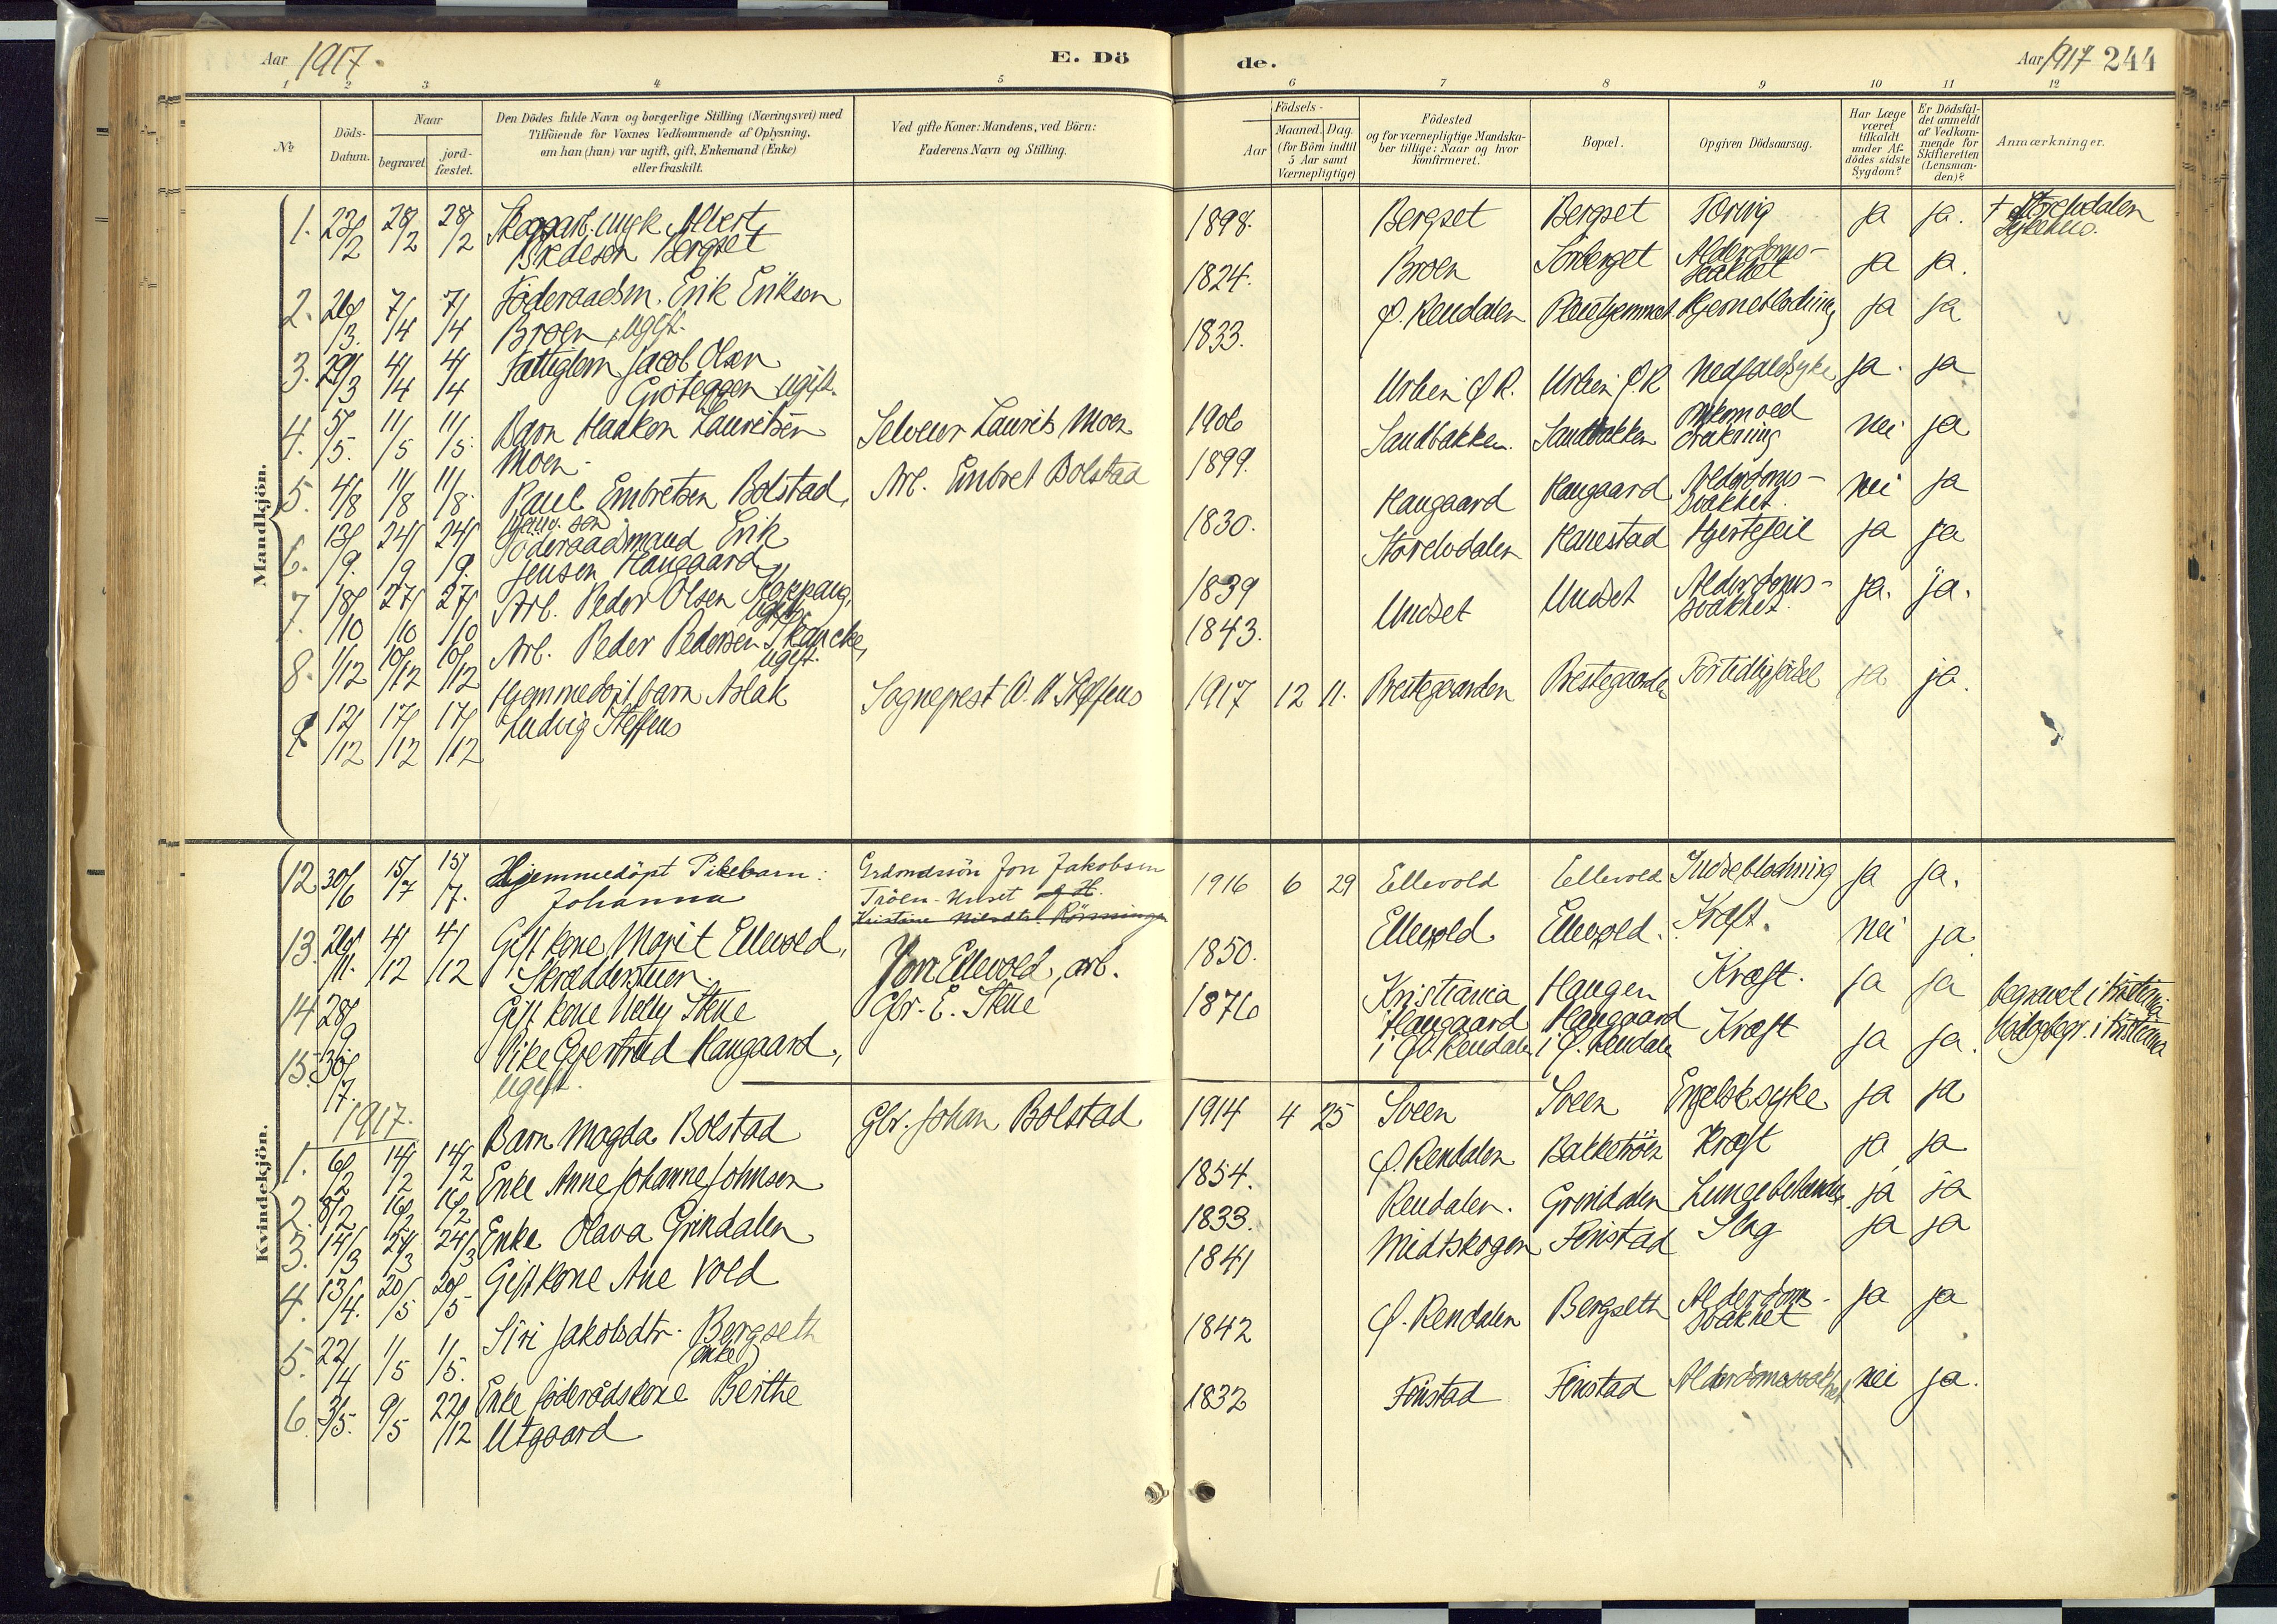 Aar 1917.
E. Dö
de.
Aar 1917 244
1 2 3 4 5 6 7 8 9 10 11 12
№
Döds-
Datum.
Naar
begravet
jord-
fæstet.
Den Dödes fulde Navn og borgerlige Stilling (Næringsvei) med
Tilföiende for Voxnes Vedkommende af Oplysning,
om han (hun) var ugift, gift, Enkemand (Enke)
eller fraskilt.
Ved gifte Koner: Mandens, ved Börn:
Faderens Navn og Stilling.
Födsels-
Aar
Maaned. Dag.
(for Börn indtil
5 Aar samt
Værnepligtige)
Födested
og for værnepligtige Mandska-
ber tillige: Naar og hvor
konfirmeret.
Bopæl.
Opgiven Dödsaarsag.
Har Læge
været
tilkaldt
under Af-
dödes sidste
Sygdom?
Er Dödsfal-
det anmeldt
af Vedkom-
mende for
Skifteretten
(Lensman-
den)?
Anmærkninger.
Mandkjön.
1. 23/2 28/2 28/2 ungk. Albert
Bredesen Bergset
1898. Bergset Bergset ja ja. † Storelvdalen
Sykehus.
2. 26/3. 7/4 7/4 Föderaadsm. Erik Eriksen
Broen, ugift.
1824. Broen Sörberget Alderdoms-
svakhet ja ja.
3. 29/3 4/4 4/4 Fattiglem Jacob Olsen
Gröteggen ugift.
1833. Ø. Rendalen Pleiehjemmet Hjerneblödning ja ja
4. 5/5. 11/5 11/5. Barn Haakon Lauritsen
Moen.
Selveier Laurits Moen
1906 Ø R. Ø. R Nedfaldsyke ja. ja
5. 4/8 11/8 11/8. Paul Embretsen Bolstad,
Arb. Embret Bolstad
1899. Sandbakken. Sandbakken omkom ved
drukning nei ja
6. 13/9. 24/9 24/9. Föderaadsmand Erik
Jensen Haugaard
1830. Haugaard Haugaard Alderdoms-
svakhet. nei ja
7. 18/10 27/10 27/10 Arb. Peder Olsen Koppang,
ugift.
1839 Storelvdalen Hanestad Hjertefeil ja ja
8. 1/12 10/12 10/12 Arb. Peder Pedersen Skancke,
ugift.
1843. Undset Undset Alderdoms-
svakhet. ja. ja.
9 12/12 17/12 17/12 Hjemmedöpt barn Aslak
Ludvig Steffens
Sogneprest Steffens
1917 12 11. Prestegaarden Prestegaarden Fortidlig födsel ja ja.
Kvindekjön.
12 30/6 15/7 15/7. Hjemmedöpt Pikebarn:
Johanna
Jon Jakobsen
Tröen-Unset
1916 6 29 Ellevold Ellevold Indreblödning ja ja.
13. 26/11. 4/12 4/12 Gift kone Marit Ellevold,
Skrædderstuen.
Jon Ellevold, arb.
1850. Ellevold Ellevold. Kræft. nei ja
14 28/9 Gift kone Nelly Stene
Gbr. E. Stene
1876 Kristiania Haugen Kræft. ja ja begravet i Kristiania
15. 30/7. Pike Gjertrud Haugaard,
ugift.
Haugaard
i Ø. Rendalen Haugaard
i Ø. Rendalen Kræft ja ja.
1917.
1. 6/2 14/2 14/2 Barn Magda Bolstad
Gbr. Johan Bolstad
1914 4 25 Sveen Sveen Engelsk syke ja ja
2. 8/2 16/2 16/2 Enke Anne Johanne Johnsen
1854. Ø. Rendalen Bakketröen Kræft ja ja
3. 14/3 24/3 24/3 Enke Olava Grindalen
1833. Rendalen. Grindalen ja ja
4. 13/4. 20/5 20/5 Gift kone Ane Vold
1841 Midtskogen Finstad Slag ja ja
5. 22/4 1/5 1/5. Siri Jakobsdtr. Bergseth
(enke)
1842 Ø. Rendalen Bergseth Alderdoms-
svakhet ja ja
6. 3/5. 9/5 22/12 Enke föderådskone Berthe
Utgaard
1832 Finstad Finstad Alderdomssvakhet nei ja.